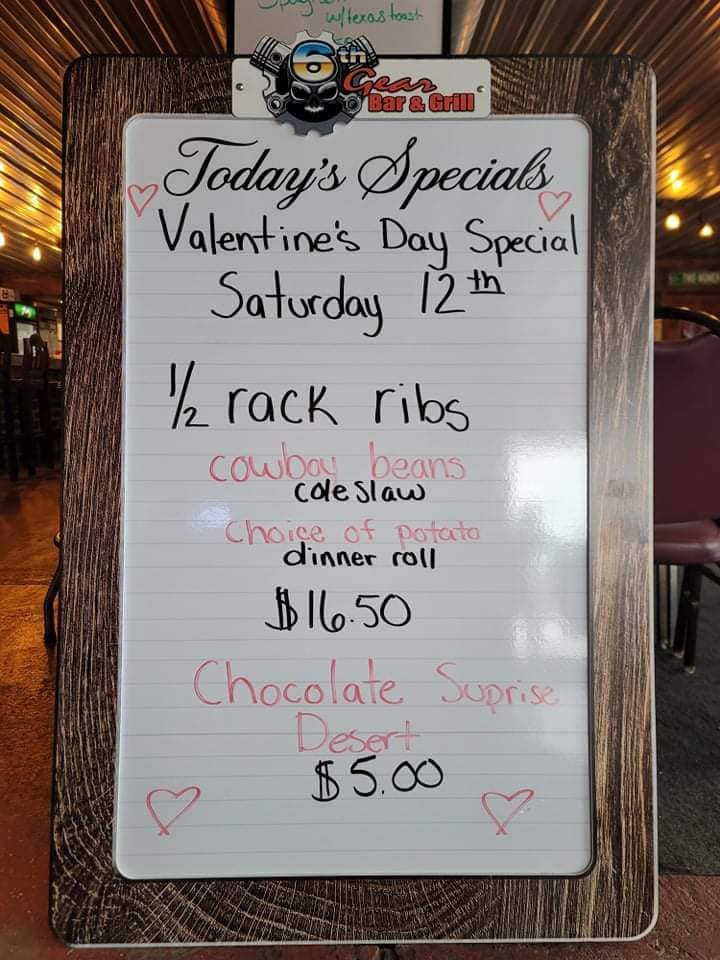 w/texas toast
6th
Gear
Bar & Grill
Today's Specials
Valentine's Day Special
Saturday 12th
1/2 rack ribs
cowboy beans
coleslaw
Choice of potato
dinner roll
$16.50
Chocolate Suprise
Desert
$5.00